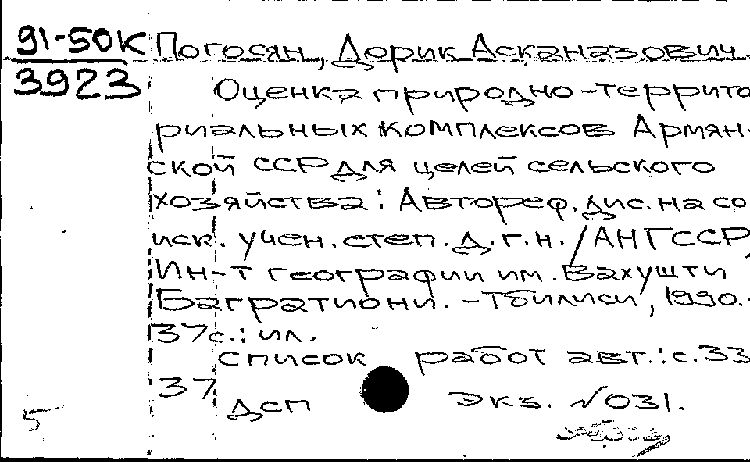 91-50К Погосян, Дорик Асканазович
3923
Оценка природно-террито
риальных комплексов Армян-
ской ССР для целей сельского
хозяйства: Автореф. дис. на со
иск. учен. степ. д.г.н. / АН ГССР,
Ин-т географии им. Вахушти
Багратиони. - Тбилиси, 1990. -
37с.: ил.
Список работ авт.: с. 33
37
ДСП экз. №031.
5